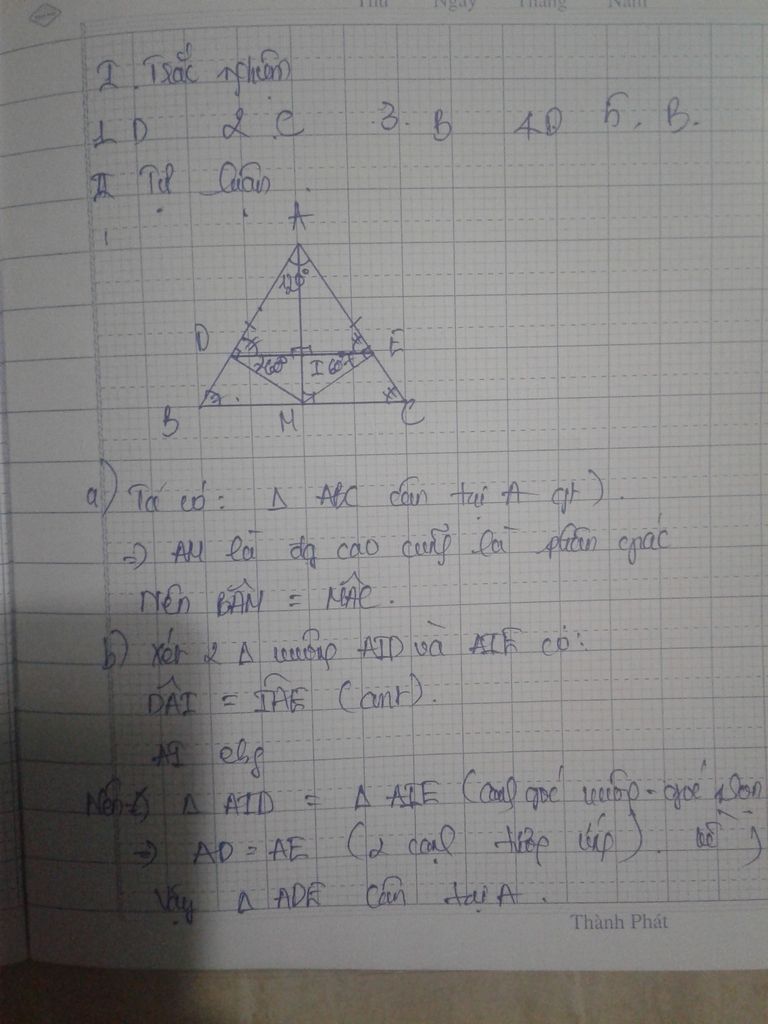 Thứ Ngày Tháng Năm
I. Trắc nghiệm
1 D 2 C 3. B 4D 5. B.
II Tự luận.
1
A
120°
D E
60° I 60°
B M C
a) Ta có: Δ ABC cân tại A gt).
=> AM là đg cao cũng là phân giác
Nên BÂM = MÂC.
b) Xét 2 Δ vuông AID và AIE có:
DÂI = IÂE (cmt).
AI chg
Nên Δ AID = Δ AIE (cạnh góc vuông - góc nhọn
=> AD = AE (2 cạnh tương ứng).
Vậy Δ ADE cân tại A.
Thành Phát